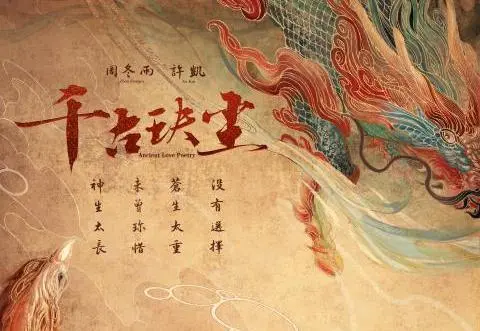 周冬雨 許凱
Zhou Dongyu Xu Kai
千古玦尘
Ancient Love Poetry
神生太長
未曾珍惜
蒼生太重
沒有選擇